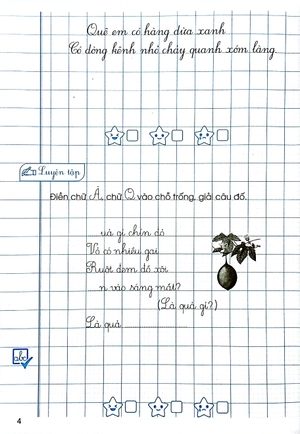 Quê em có hàng dừa xanh
Có dòng kênh nhỏ chảy quanh xóm làng.
Luyện tập
Điền chữ Â, chữ Q vào chỗ trống, giải câu đố.
uả gì chín đỏ
Vỏ có nhiều gai
Ruột đem đồ xôi
n vào sáng mắt?
(Là quả gì?)
Là quả
abc
4